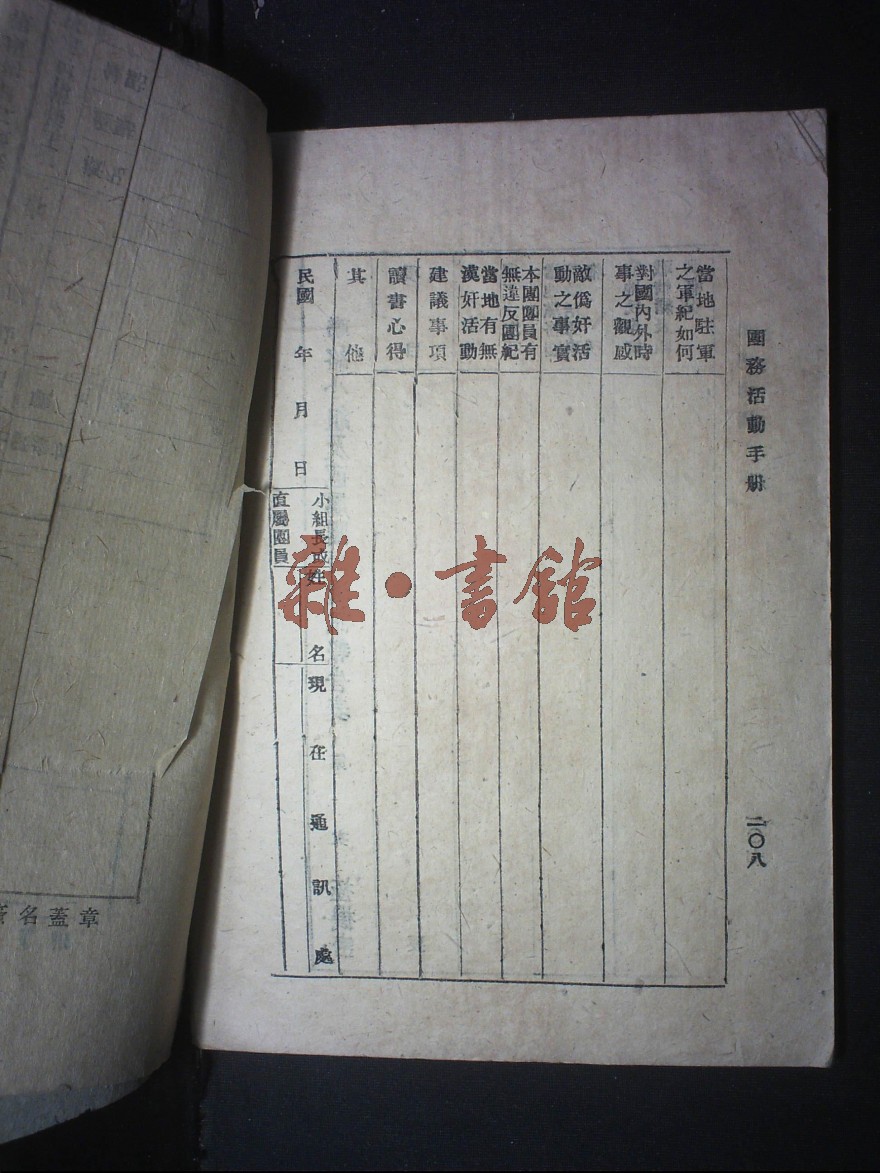 團務活動手册
二〇八
當地駐軍
之軍紀如何
對國內外時
事之觀感
敵僞奸活
動之事實
本團團員有
無違反團紀
當地有無
漢奸活動
建議事項
讀書心得
其他
民國 年 月 日
小組長或
直屬團員
姓名
現在通訊處
名蓋章
雜·書館